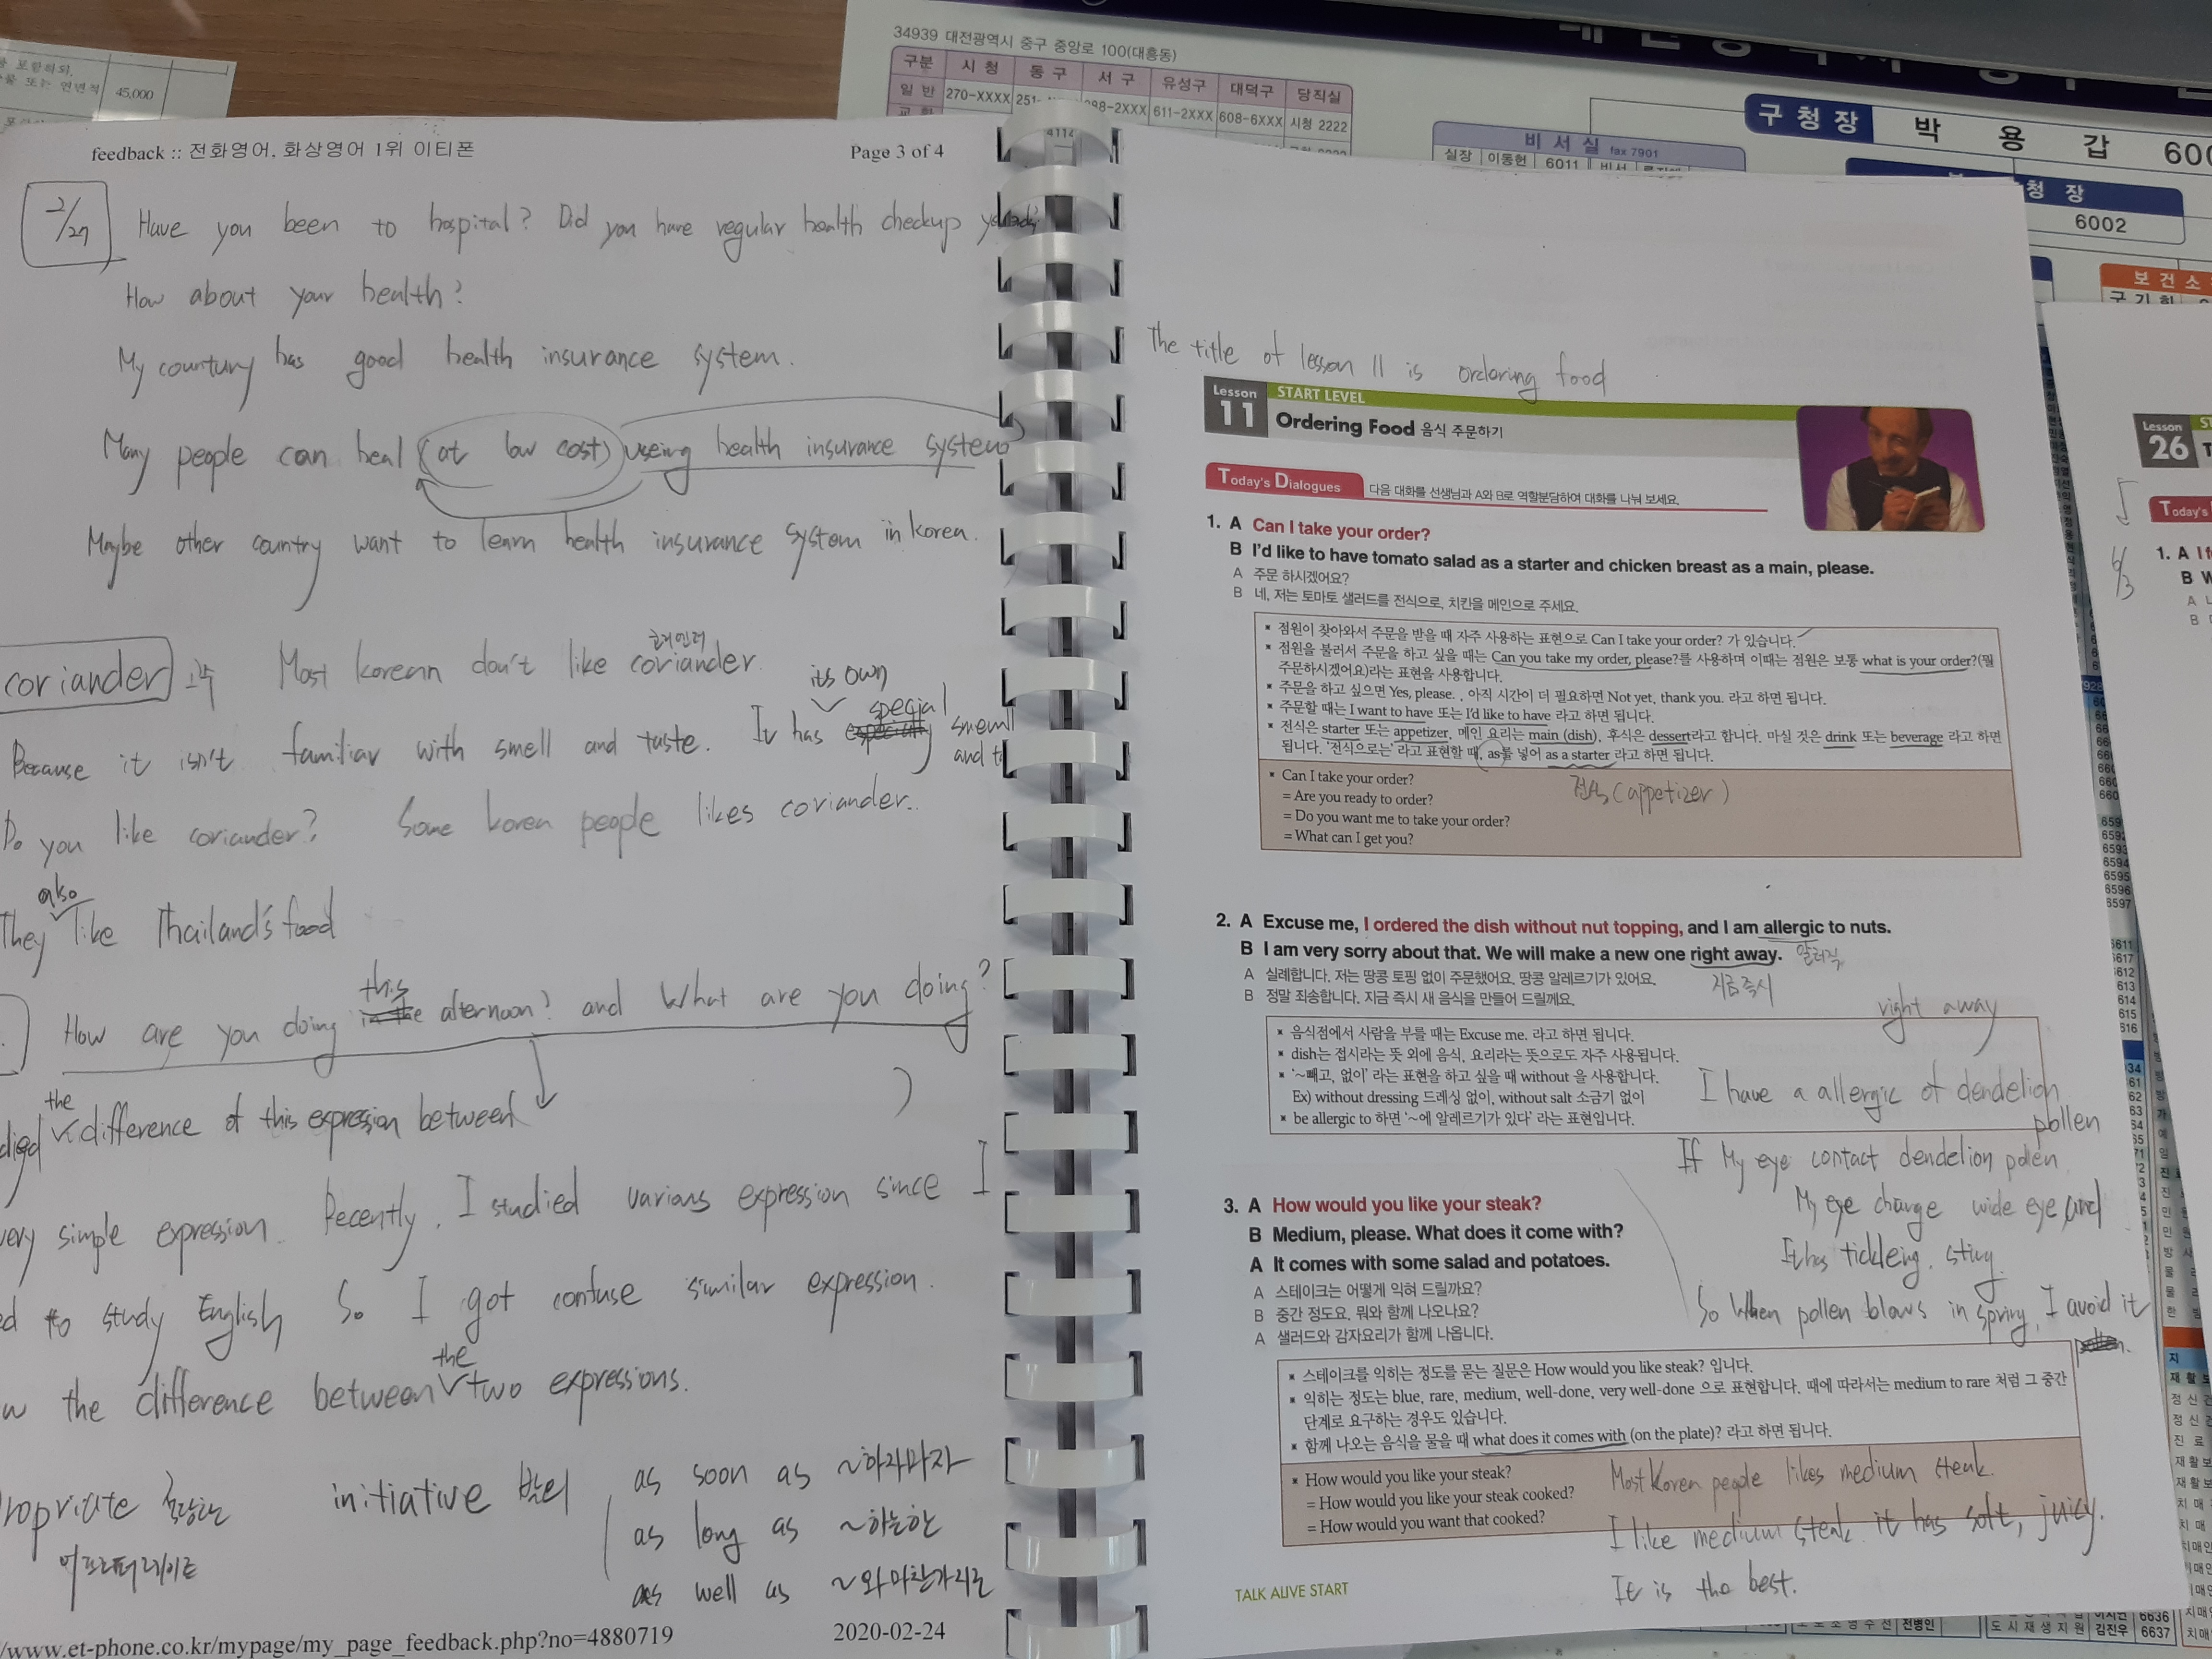 를 포함하되,
물 또는 연면적 45,000
34939 대전광역시 중구 중앙로 100(대흥동)
구분 시 청 동 구 서 구 유성구 대덕구 당직실
일 반 270-XXXX 251- 288-2XXX 611-2XXX 608-6XXX 시청 2222
4114
구청장 박 용 갑
비 서 실 fax 7901
실장 이동현 6011 비서
청 장
6002
보 건 소
feedback :: 전화영어, 화상영어 1위 이티폰 Page 3 of 4
2/27
Have you been to hospital? Did you have regular health checkup
How about your health?
My countury has good health insurance system.
Many people can heal (at low cost) useing health insurance system
Maybe other country want to learn health insurance system in korea.
coriander 고수
코리앤더
Most korean don't like coriander.
its own
special
Because it isn't familiar with smell and taste. It has especially smell
and
Do you like coriander? Some koren people likes coriander.
also
They like Thailand's food
this
How are you doing in the afternoon? and What are you doing?
the
difference of this expression between
very simple expression. Recently, I studied various expression since I
to study English So I got confuse similar expression.
the
the difference between two expressions.
initiative as soon as ~하자마자
as long as ~하는한
as well as ~와마찬가지로
어프러퍼레이트
/www.et-phone.co.kr/mypage/my_page_feedback.php?no=4880719 2020-02-24
The title of lesson 11 is ordering food
Lesson 11 START LEVEL
Ordering Food 음식 주문하기
Today's Dialogues 다음 대화를 선생님과 A와 B로 역할분담하여 대화를 나눠 보세요.
1. A Can I take your order?
B I'd like to have tomato salad as a starter and chicken breast as a main, please.
A 주문 하시겠어요?
B 네, 저는 토마토 샐러드를 전식으로, 치킨을 메인으로 주세요.
* 점원이 찾아와서 주문을 받을 때 자주 사용하는 표현으로 Can I take your order? 가 있습니다.
* 점원을 불러서 주문을 하고 싶을 때는 Can you take my order, please?를 사용하며 이때는 점원은 보통 what is your order?(뭘
주문하시겠어요)라는 표현을 사용합니다.
* 주문을 하고 싶으면 Yes, please. , 아직 시간이 더 필요하면 Not yet, thank you. 라고 하면 됩니다.
* 주문할 때는 I want to have 또는 I'd like to have 라고 하면 됩니다.
* 전식은 starter 또는 appetizer, 메인 요리는 main (dish), 후식은 dessert라고 합니다. 마실 것은 drink 또는 beverage 라고 하면
됩니다. '전식으로는' 라고 표현할 때, as를 넣어 as a starter 라고 하면 됩니다.
* Can I take your order?
= Are you ready to order?
= Do you want me to take your order?
= What can I get you?
전식 (appetizer)
2. A Excuse me, I ordered the dish without nut topping, and I am allergic to nuts.
B I am very sorry about that. We will make a new one right away. 알러직
A 실례합니다. 저는 땅콩 토핑 없이 주문했어요. 땅콩 알레르기가 있어요.
B 정말 죄송합니다. 지금 즉시 새 음식을 만들어 드릴께요.
지금즉시
right away
* 음식점에서 사람을 부를 때는 Excuse me. 라고 하면 됩니다.
* dish는 접시라는 뜻 외에 음식, 요리라는 뜻으로도 자주 사용됩니다.
* '~빼고, 없이' 라는 표현을 하고 싶을 때 without 을 사용합니다.
Ex) without dressing 드레싱 없이, without salt 소금기 없이
* be allergic to 하면 '~에 알레르기가 있다' 라는 표현입니다.
I have a allergic of dendelion
pollen
If My eye contact dendelion pollen
My eye change wide eye and
It has tickleing. sting
So When pollen blows in spring, I avoid it
pollen.
3. A How would you like your steak?
B Medium, please. What does it come with?
A It comes with some salad and potatoes.
A 스테이크는 어떻게 익혀 드릴까요?
B 중간 정도요. 뭐와 함께 나오나요?
A 샐러드와 감자요리가 함께 나옵니다.
* 스테이크를 익히는 정도를 묻는 질문은 How would you like steak? 입니다.
* 익히는 정도는 blue, rare, medium, well-done, very well-done 으로 표현합니다. 때에 따라서는 medium to rare 처럼 그 중간
단계로 요구하는 경우도 있습니다.
* 함께 나오는 음식을 물을 때 what does it comes with (on the plate)? 라고 하면 됩니다.
* How would you like your steak?
= How would you like your steak cooked?
= How would you want that cooked?
Most Koren people likes medium steak.
I like medium steak. it has soft, juicy.
It is the best.
TALK ALIVE START
Lesson 26
Today's
1. A
B
6597
6636
도 시 재 생 지 원 김진우 6637